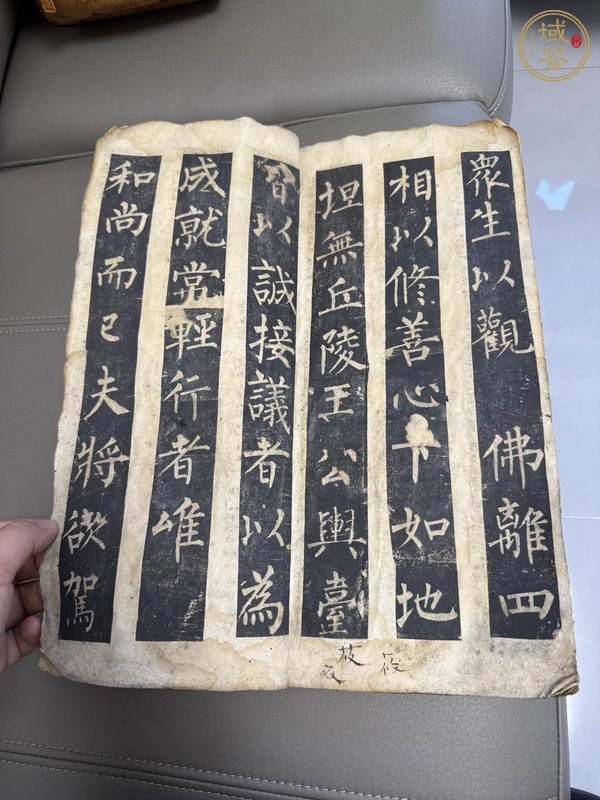 眾生以觀佛離四
相以修善心下如地
坦無丘陵王公輿臺
皆以誠接議者以為
成就常輕行者唯
和尚而已夫將欲駕
域鑒